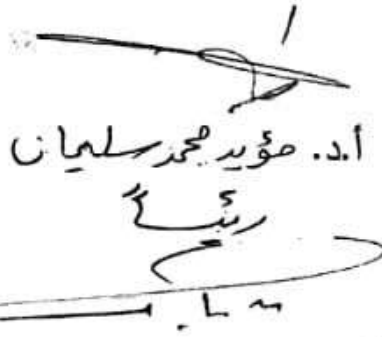 أ.د. مؤيد محمد سليمان
رئيساً